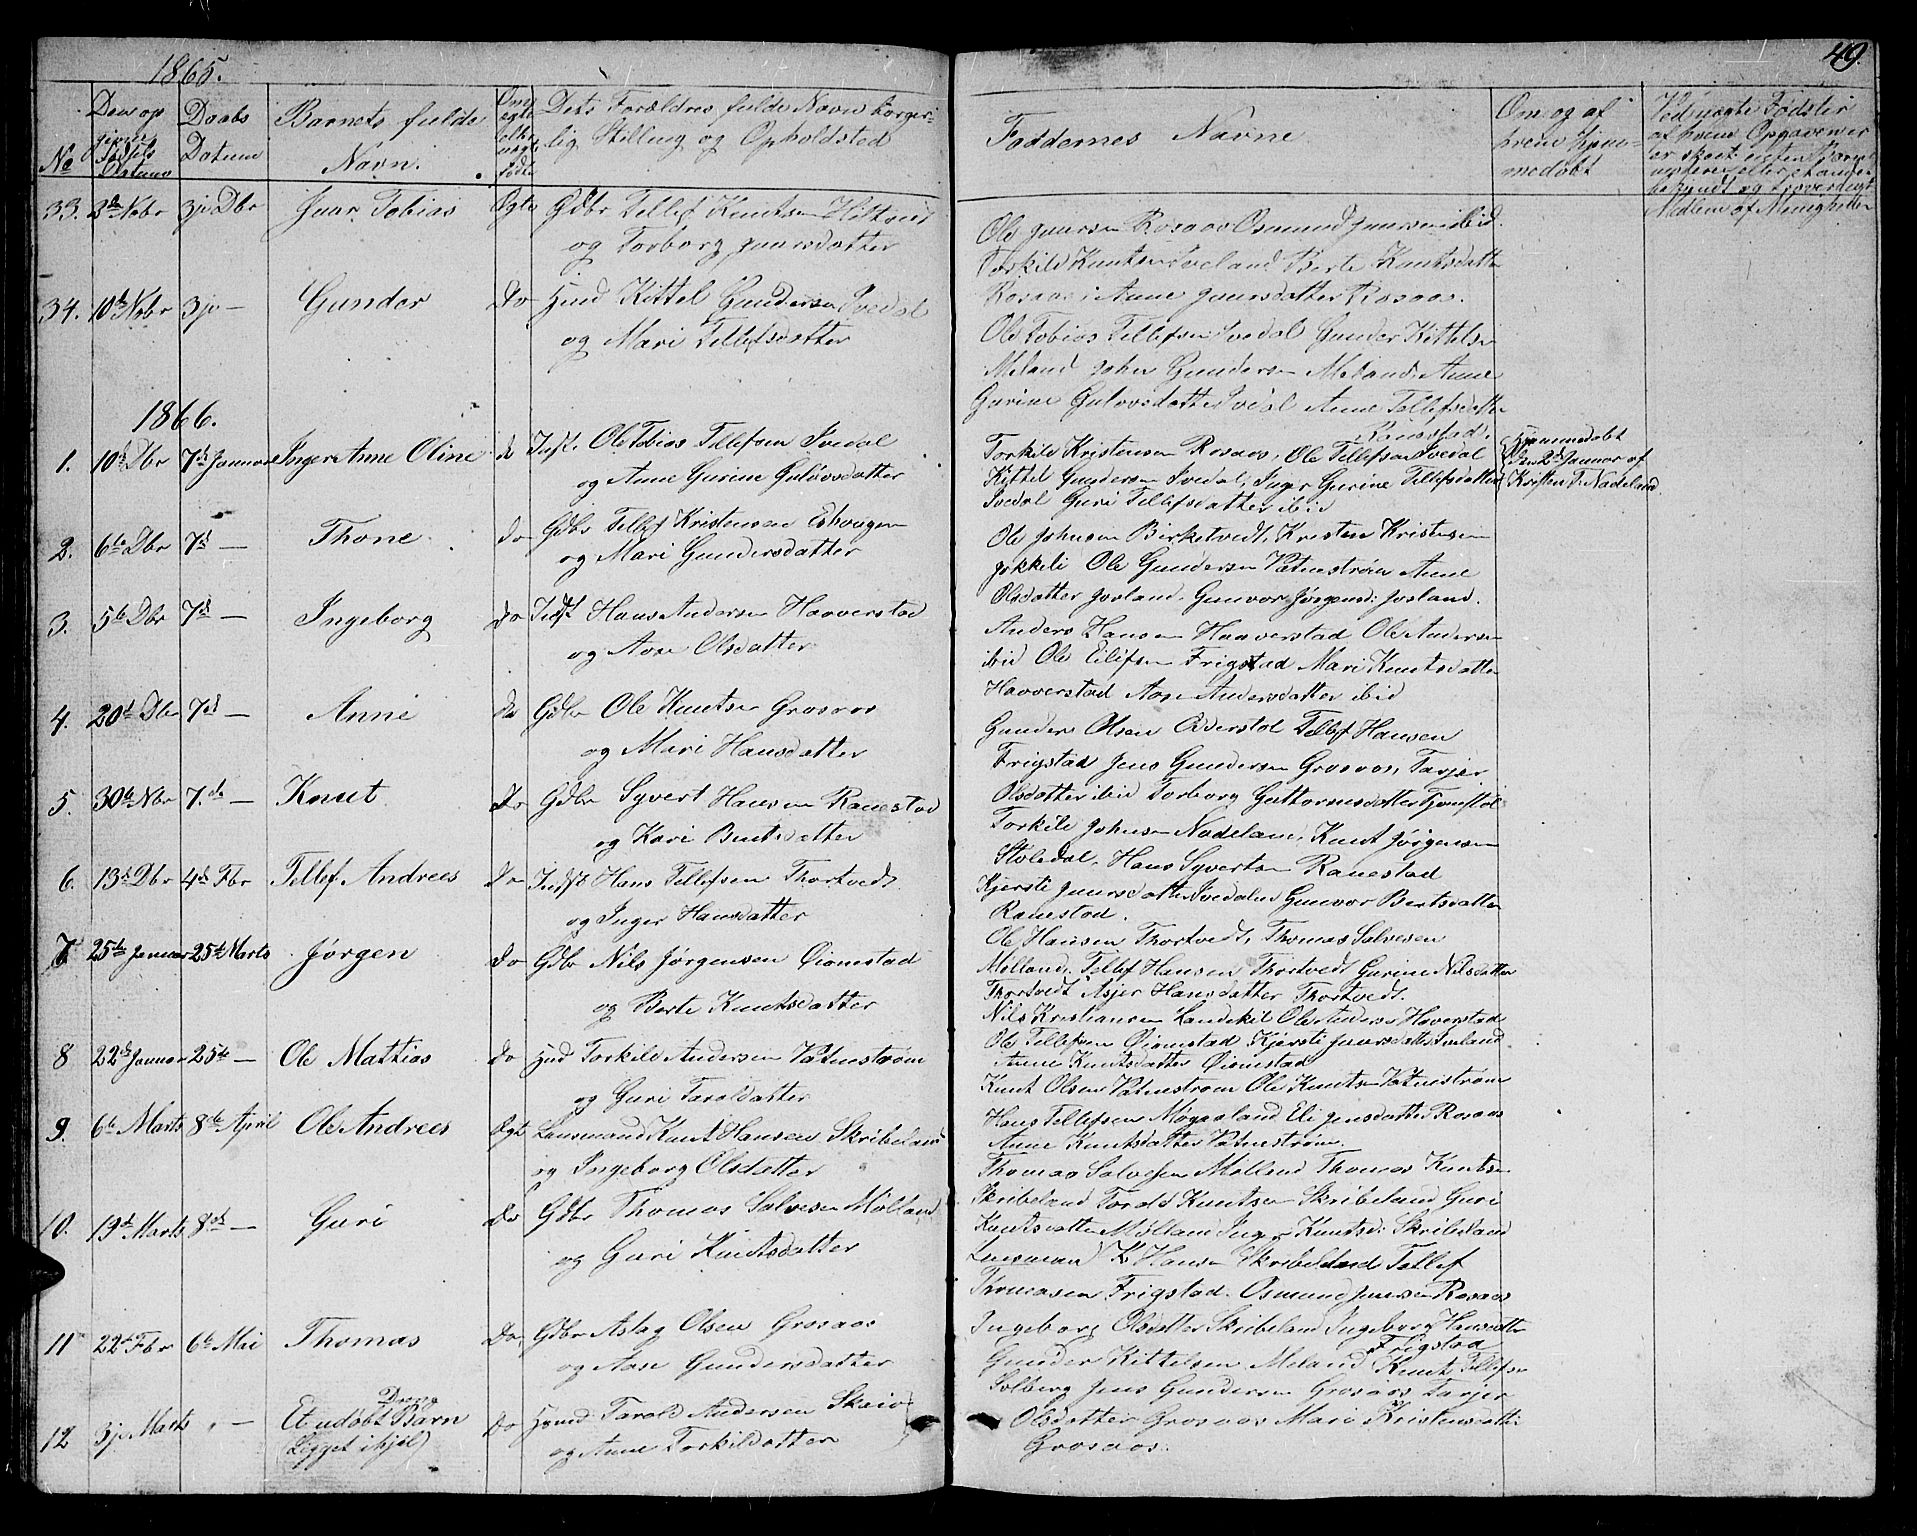 1865.
49.
No
Den op
givet
Fødsels
Datum
Daabs
Datum
Barnets fulde
Navn.
Om
ægte
eller
uægte
født
Dets Forældres fulde Navn borger-
lig Stilling og Opholdsted
Faddernes Navne
Om og af
hvem hjem-
medøbt
Ved uægte Fødsler
af hvem Opgaven er
er skeet enten
eller
bekjendt og troværdigt
Medlem af Menigheden
33. 2de Nobr 3je Dbr Jaar Tobias Ægte Gdbr Tellef Knutsen Hiltveit
og Torborg Jaarsdatter
Ole Jaarsen Rosaas Osmund Jaarsen ibid.
Torkild Knutsen Iveland Berte Knutsdatter
Rosaas, Anne Jaarsdatter Rosaas.
34. 10de Nobr 3je — Gunder do Hmd Kittel Gundersen Ivedal
og Mari Tellefsdatter
Ole Tobias Tellefsen Ivedal Gunder Kittelsen
Meland John Gundersen Meland, Anne
Gurine Gulovsdatter Ivedal Anne Tellefsdatter
Ranestad.
1866.
1. 10de Dbr 7de Januar Inger Anne Oline do Indst. Ole Tobias Tellefsen Ivedal
og Anne Gurine Guløvsdatter
Torkild Kristensen Rosaas, Ole Tellefsen Ivedal
Kittel Gundersen Ivedal, Inger Gurine Tellefsdatter
Ivedal Guri Tellefsdatter ibid
Hjemmedøbt
den 2de Januar af
Kristen T. Nadeland.
2. 6te Dbr 7de — Thone do Gdbr Tellef Kristensen Eshaugen
og Mari Gundersdatter
Ole Johnsen Birketvedt, Kristen Kristensen
Jokkeli Ole Gundersen Vatnestrøm Anne
Olsdatter Josland. Gunvor Jørgensd: Josland.
3. 5te Dbr 7de — Ingeborg do Indst Hans Andersen Haaverstad
og Aase Olsdatter
Anders Hansen Haaverstad Ole Andersen
ibid Ole Eilifsen Frigstad Mari Knutsdatter
Haaverstad Aase Andersdatter ibid
4. 20de Dbr 7de — Anne do Gdbr Ole Knutsen Grosaas
og Mari Hansdatter
Gunder Olsen Oderstol Tellef Hansen
Frigstad Jens Gundersen Grosaas, Tarjer
Olsdatter ibid Torborg Guttormsdatter
5. 30te Nbr 7.de — Knut do Gdbr Syvert Hansen Ranestad
og Kari Bentsdatter
Torkild Johnsen Nadeland, Knut Jørgensen
Stoledal, Hans Syvertsen Ranestad
Kjersti Jaarsdatter Ivedalen Gunvor Bertsdatter
Ranestad.
6. 13de Dbr 4de Fbr Tellef Andrees do Indst Hans Tellefsen Thortvedt
og Inger Hansdatter
Ole Hansen Thortvedt, Thomas Salvesen
Mølland. Tellef Hansen Thortvedt Gurine Nilsdatter
Thortvedt Asjer Hansdatter Thortvedt.
7 25de Januar 25de Marts Jørgen do Gdbr Nils Jørgensen Øiomstad
og Berte Knutsdatter
Nils Kristiansen Landekil Ole Anders: Haverstad
Ole Tellefsen Øiomstad Kjersti Jaarsdatter Iveland
Anne Knutsdatter Øiomstad
8 22de Januar 25de — Ole Mathias do Hmd Torkild Andersen Vatnestrøm
og Guri Taraldatter
Knut Olsen Vatnestrøm Ole Knutsen Vatnestrøm
Hans Tellefsen Møgaland Eli Jensdatter Rosaas
Anne Knutsdatter Vatnestrøm.
9. 6te Marts 8de April Ole Andrees Ægte Lensmand Knut Hansen Skribeland
og Ingeborg Olsdatter
Thomas Salvesen Mølland Thomas Knutsen
Skribeland Torald Knutsen Skribeland Guri
Knutsdatter Mølland Inger Knutsd: Skribeland
10. 19de Marts 8de — Guri do Gdbr Thomas Salvesen Mølland
og Guri Knutsdatter
Lensmand K. Hansen Skribeland Tellef
Thomasen Frigstad. Osmund Jaarsen Rosaas
Ingeborg Olsdatter Skribeland Ingeborg Hansdatter
Frigstad
11 22de Fbr 6te Mai Thomas do Gdbr Aslag Olsen Grosaas
og Aase Gundersdatter
Gunder Kittelsen Meland Knut Tellefsen
Solberg Jens Gundersen Grosaas Tarjer
Olsdatter Grosaas Mari Kristensdatter
Grosaas.
12 3je Marts " — Et udøbt Drenge Barn
(Ligget ihjel)
do Hmd: Tarald Andersen Skeie
og Anne Torkildatter